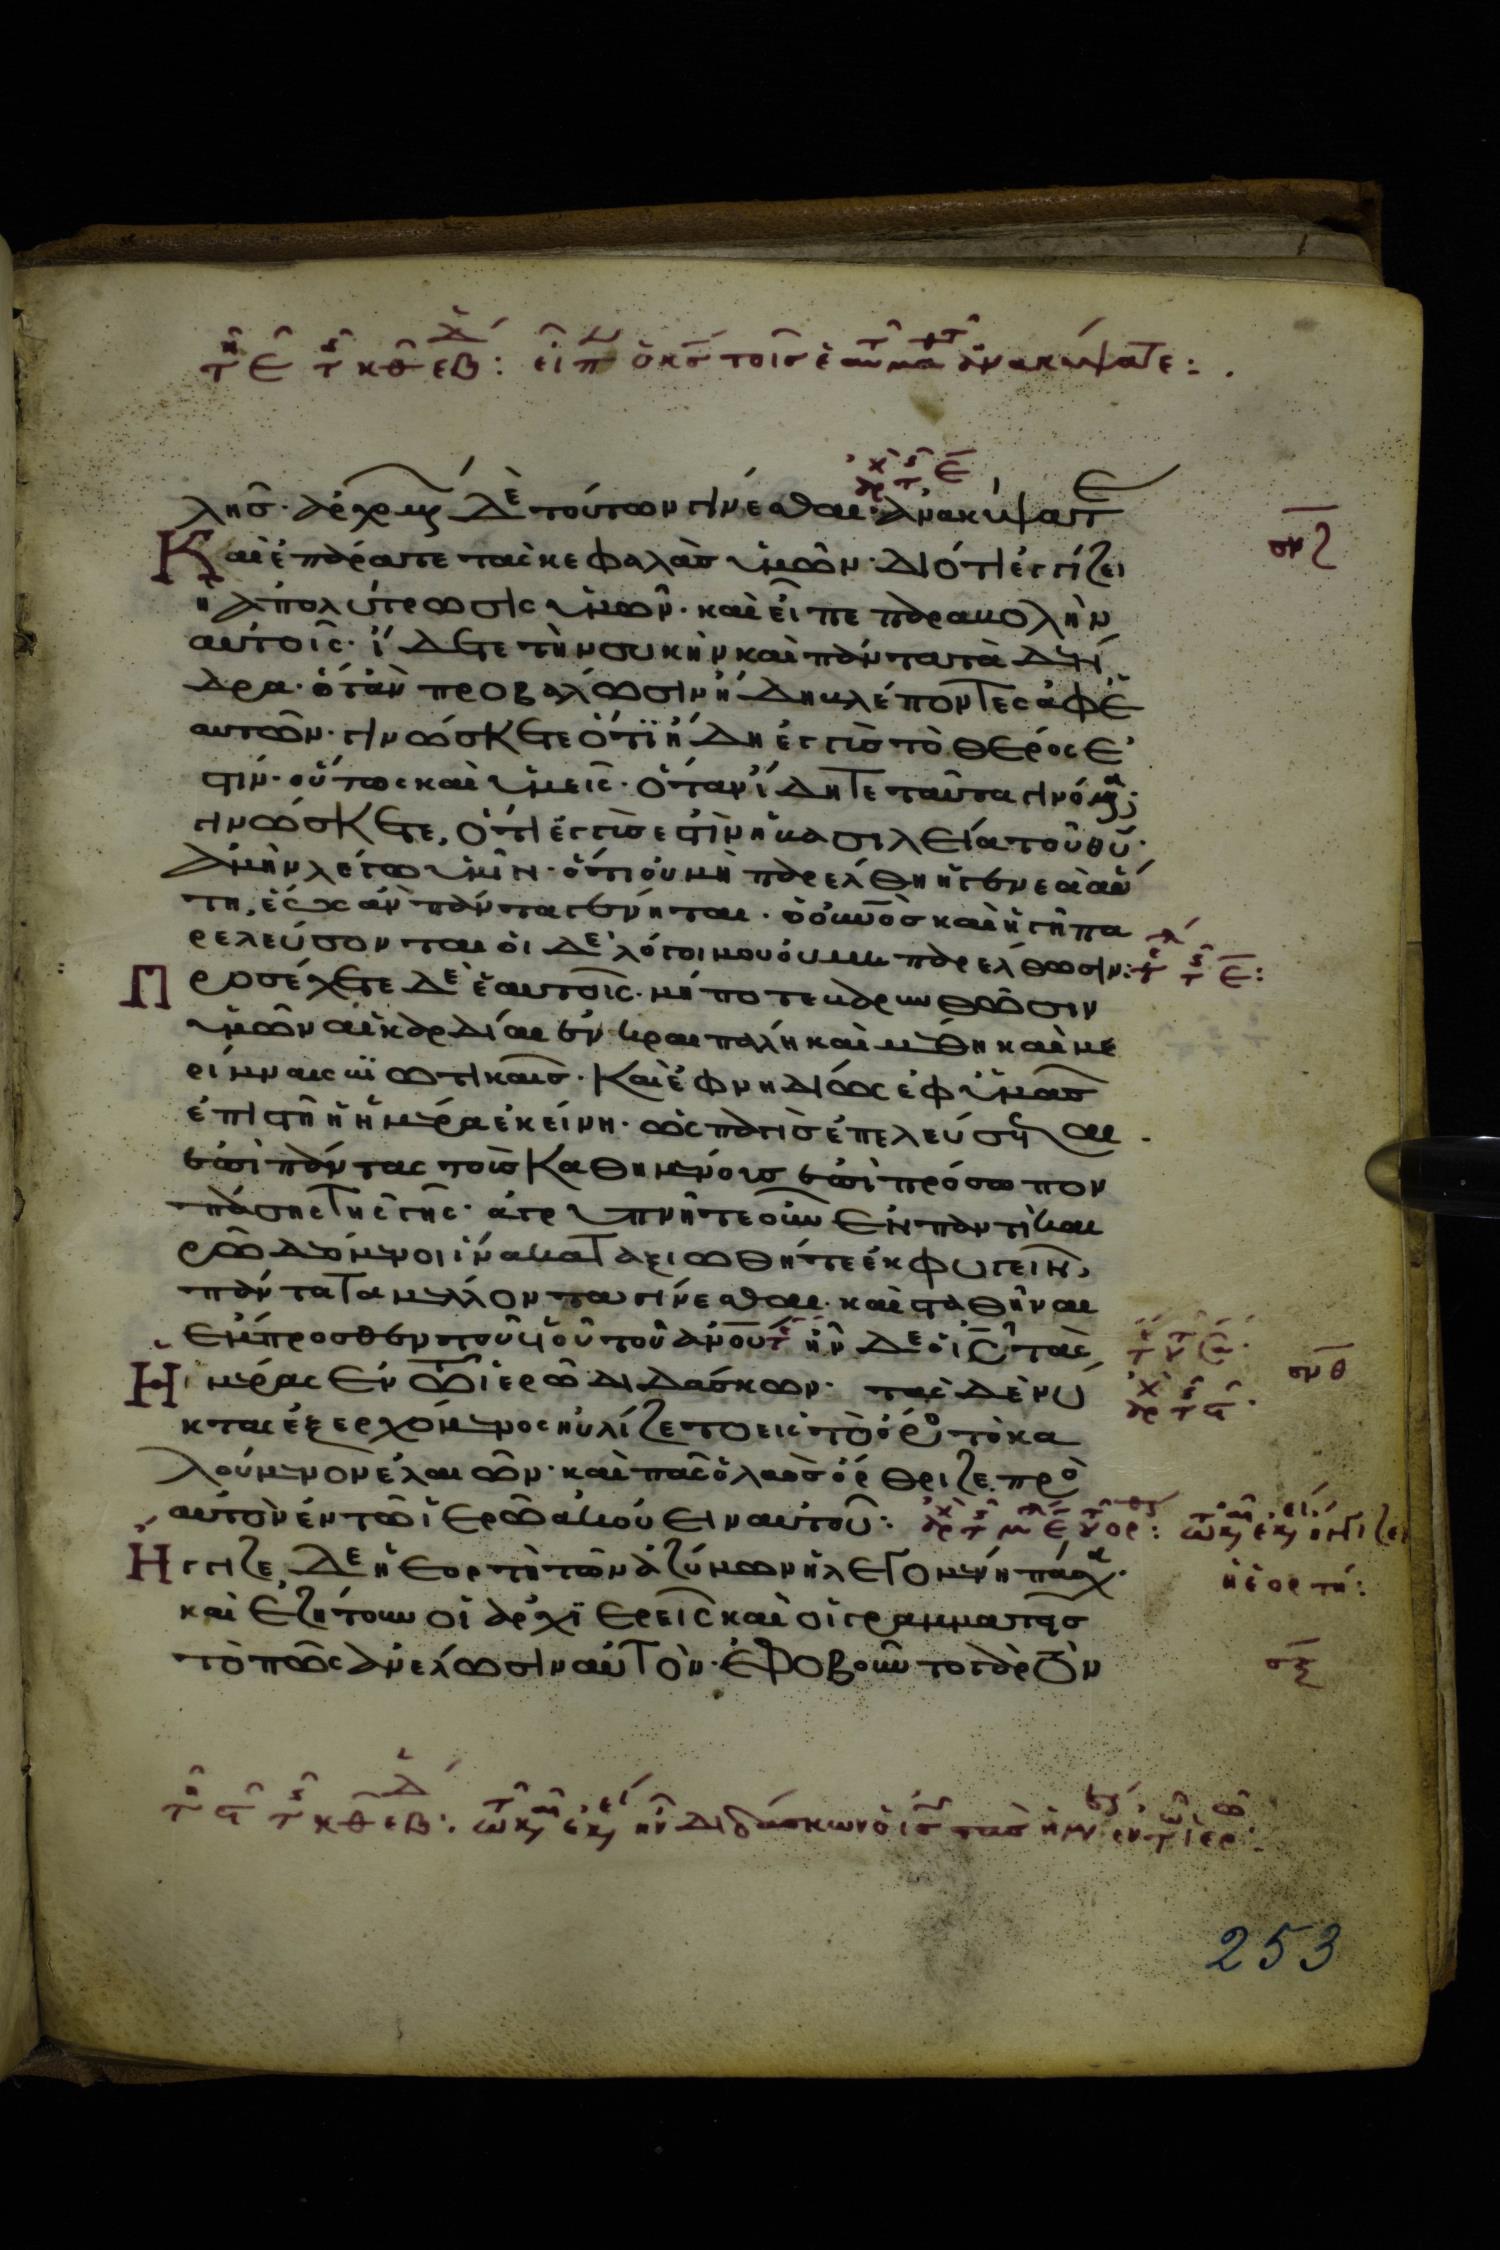 εἶπ ὁ κς τοῖς ἑαυ μα ἀνακύψατε:
λης· ἀρχομ δὲ τούτων γίνεσθαι· ἀνακύψατε
Καὶ ἐπάρατε τὰς κεφαλὰς ὑμῶν· διότι ἐγγίζει
ἡ ἀπολύτρωσις ὑμῶν· καὶ εἶπε παραβολὴν
αὐτοῖς· ἴδετε τὴν συκὴν καὶ πάντα τὰ δέν
δρα· ὅτὰν προβαλωσιν ἤδη βλέποντες ἀφ ἑ
αυτῶν· γινώσκετε ὅτϊ ἤδη ἐγγὺς τὸ θέρος ἐ
στίν· οὕτως καὶ ὑμεῖς· ὅταν ἴδητε ταῦτα γινόμενα
γινώσκετε, ὅτι ἐγγύς ἐστὶν ἡ βασιλεία τοῦ θυ·
ἀμὴν λέγω ὑμῖν· ὅτι οὐ μὴ παρέλθη ἡ γενεὰ αὕ
τη, ἕως ἂν πάντα γένηται· ὁ οὐνὸς καὶ ἡ γῆ πα
ρελεύσονται οἱ δὲ λόγοι μου οὐ μὴ παρέλθωσιν:
Προσέχετε δὲ ἑαυτοῖς· μήποτε βαρυνθῶσιν
ὑμῶν αἱ καρδίαι ἐν κραιπάλη καὶ μέθη καὶ με
ρίμναις βϊωτικαῖς· Καὶ ἐφνηδίως ἐφ ὑμᾶς
ἐπιστῆ ἡ ἡμέρα ἐκείνη· ὡς παγὶς ἐπελεύσεται
ἐπὶ πάντας τοὺς καθημένους ἐπὶ πρόσωπον
πάσης τῆς γῆς· ἀγρυπνῆτε οὖν ἐν παντὶ και
ρῶ δεόμενοι ἵνα καταξιωθήτε ἐκφυγεῖν,
πάντα τὰ μέλλοντα γίνεσθαι· καὶ σταθῆναι
ἔμπροσθεν τοῦ υἱοῦ τοῦ ἀνου ἦν δὲ ὁ ις τὰς
Ἡμέρας ἐν τῶ ἱερῶ διδάσκων· τὰς δὲ νύ
κτας ἐξερχόμενος ηὐλίζετο εἰς τὸ ὄρος τὸ κα
λούμενον ἐλαιῶν· καὶ πᾶς ὁ λαὸς ὄρθριζε πρὸ
αὐτὸν ἐν τῶ ἱερῶ ἀκούειν αὐτοῦ: ἤγγιζεν
Ἤγγιζε δὲ ἡ ἑορτὴ τῶν ἀζύμων ἡ λεγομένη πάσχα·
ἡ ἑορτή:
καὶ ἐζήτουν οἱ ἀρχϊερεῖς καὶ οἱ γραμματεῖς
τὸ πῶς ἀνέλωσιν αὐτὸν· ἐφοβοῦντο γὰρ τὸν
ἦν διδάσκων ὁ ις τὰς ἡμε ἐν τ ἱερ
253